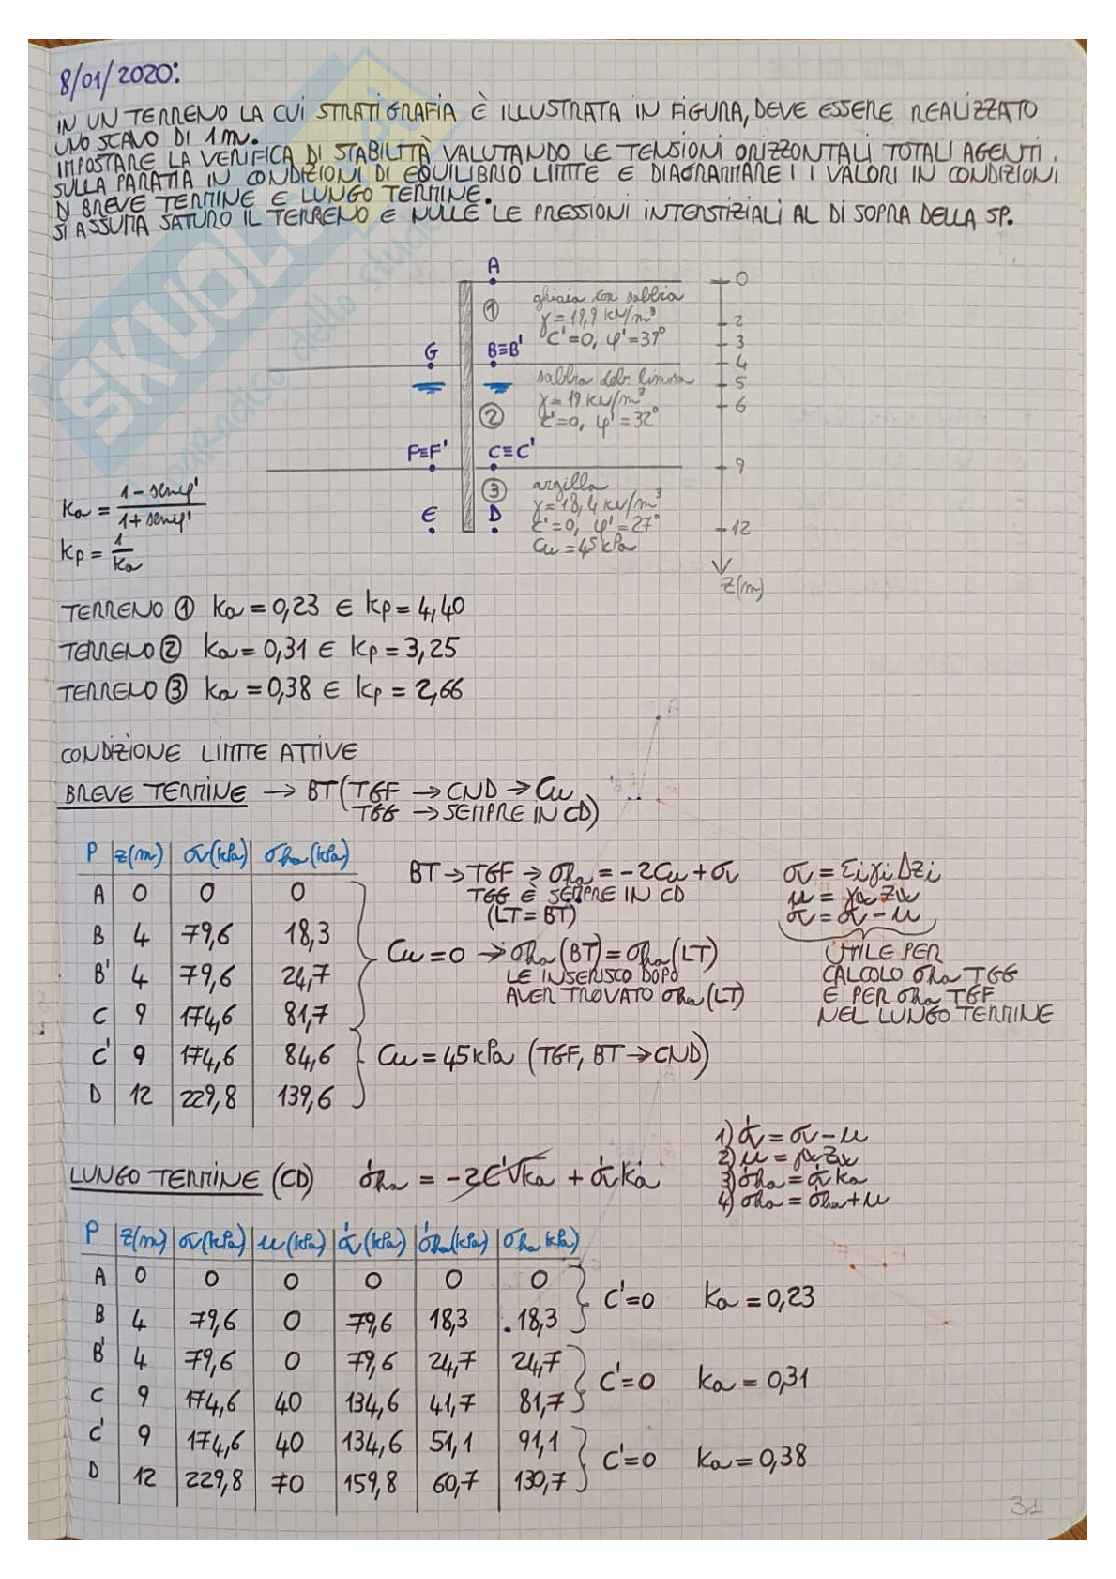 8/01/2020:
IN UN TERRENO LA CUI STRATIGRAFIA È ILLUSTRATA IN FIGURA, DEVE ESSERE REALIZZATO
UNO SCAVO DI 1m.
IMPOSTARE LA VERIFICA DI STABILITÀ VALUTANDO LE TENSIONI ORIZZONTALI TOTALI AGENTI
SULLA PARATIA IN CONDIZIONI DI EQUILIBRIO LIMITE E DIAGRAMMARE I VALORI IN CONDIZIONI
DI BREVE TERMINE E LUNGO TERMINE.
SI ASSUMA SATURO IL TERRENO E NULLE LE PRESSIONI INTERSTIZIALI AL DI SOPRA DELLA SP.
A
0
① ghiaia con sabbia
γ = 19,9 kN/m³
C'=0, φ'=39°
2
3
G B≡B' 4
sabbia deb. limosa 5
γ = 19 kN/m³
② C'=0, φ'=32° 6
F≡F' C≡C'
9
③ argilla
γ = 18,4 kN/m³
E D C'=0, φ'=27° 12
Cu = 45 kPa
z(m)
ka = 1-senφ' / 1+senφ'
kp = 1/ka
TERRENO ① ka = 0,23 E kp = 4,40
TERRENO ② ka = 0,31 E kp = 3,25
TERRENO ③ ka = 0,38 E kp = 2,66
CONDIZIONE LIMITE ATTIVE
BREVE TERMINE → BT (TGF → CND → Cu
TGG → SEMPRE IN CD)
P z(m) σv(kPa) σha(kPa)
A 0 0 0
B 4 79,6 18,3
B' 4 79,6 24,7
C 9 174,6 81,7
C' 9 174,6 84,6
D 12 229,8 139,6
BT → TGF → σha = -2Cu + σv
TGG È SEMPRE IN CD
(LT = BT)
Cu = 0 → σha (BT) = σha (LT)
LE INSERISCO DOPO
AVER TROVATO σha (LT)
Cu = 45 kPa (TGF, BT → CND)
σv = Σi γi Δzi
u = γw zw
σ'v = σv - u
UTILE PER
CALCOLO σha TGG
E PER σha TGF
NEL LUNGO TERMINE
LUNGO TERMINE (CD) σ'ha = -2C'√ka + σ'v ka
1) σ'v = σv - u
2) u = γw zw
3) σ'ha = σ'v ka
4) σha = σ'ha + u
P z(m) σv(kPa) u(kPa) σ'v(kPa) σ'ha(kPa) σha kPa)
A 0 0 0 0 0 0
B 4 79,6 0 79,6 18,3 18,3
B' 4 79,6 0 79,6 24,7 24,7
C 9 174,6 40 134,6 41,7 81,7
C' 9 174,6 40 134,6 51,1 91,1
D 12 229,8 70 159,8 60,7 130,7
C'=0 ka = 0,23
C'=0 ka = 0,31
C'=0 ka = 0,38
31